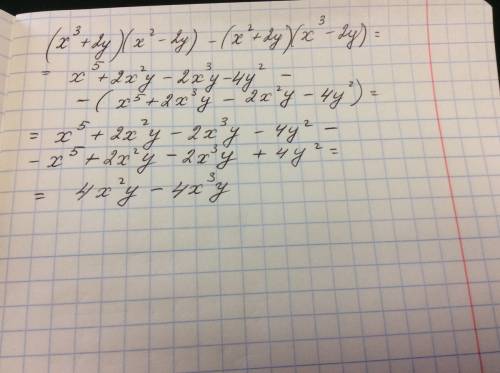 (x³+2y)(x²-2y) - (x²+2y)(x³-2y) =
= x⁵+2x²y-2x³y-4y² -
- (x⁵+2x³y - 2x²y - 4y²) =
= x⁵+2x²y - 2x³y - 4y² -
- x⁵+2x²y - 2x³y + 4y² =
= 4x²y - 4x³y